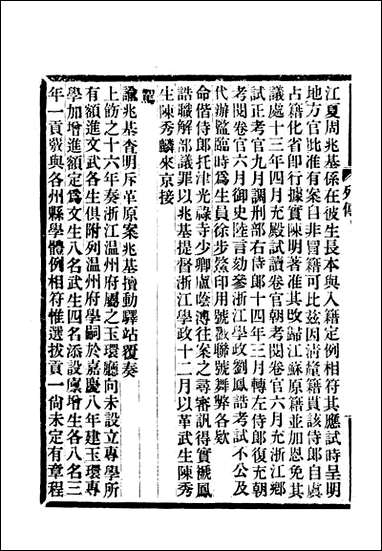 列傳
江夏周兆基係在彼生長本與入籍定例相符其應試時呈明
地方官批准有案自非冒籍可比茲因清釐籍貫該侍郎自虞
占籍化省卽行據實陳明著准其改歸江蘇原籍並加恩免其
議處十三年四月充殿試讀卷官朝考閱卷官六月充浙江鄉
試正考官九月調刑部右侍郎十四年三月轉左侍郎復充朝
考閱卷官六月御史陸言劾參浙江學政劉鳳誥考試不公及
代辦監臨時爲生員徐步鼇印用號戳聯號舞弊各欵
命偕侍郎托津光祿寺少卿盧蔭溥往案之尋審訊得實褫鳳
誥職解部議罪以兆基提督浙江學政十二月以革武生陳秀
生陳秀麟來京接
駕
諭兆基查明斥革原案兆基擅動驛站覆奏
上飭之十六年奏浙江溫州府屬之玉環廳向未設立專學所
有額進文武各生俱附列溫州府學嗣於嘉慶八年建玉環專
學加增進額定爲文生八名武生四名添設廩增生各八名三
年一貢戮與各州縣學體例相符惟選拔貢一尙未定有章程